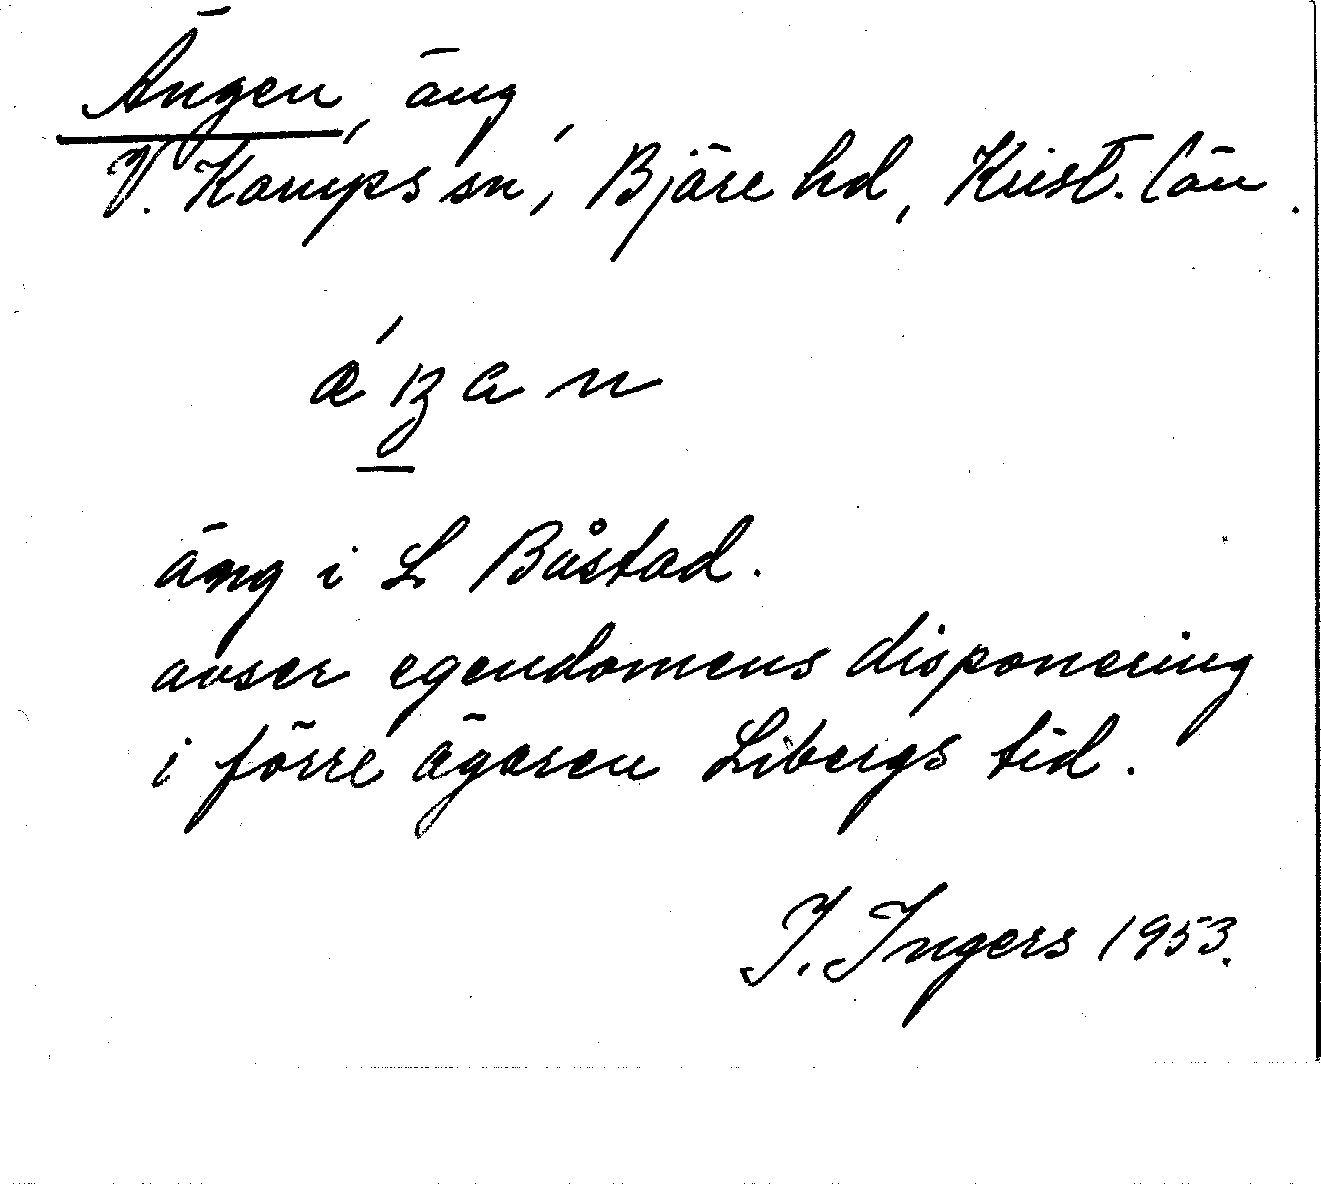 Ängen, äng
V. Karups sn, Bjäre hd, Krist. län.
äng i L Båstad.
avser egendomens disponering
i förre ägaren Libergs tid.
I. Ingers 1953.